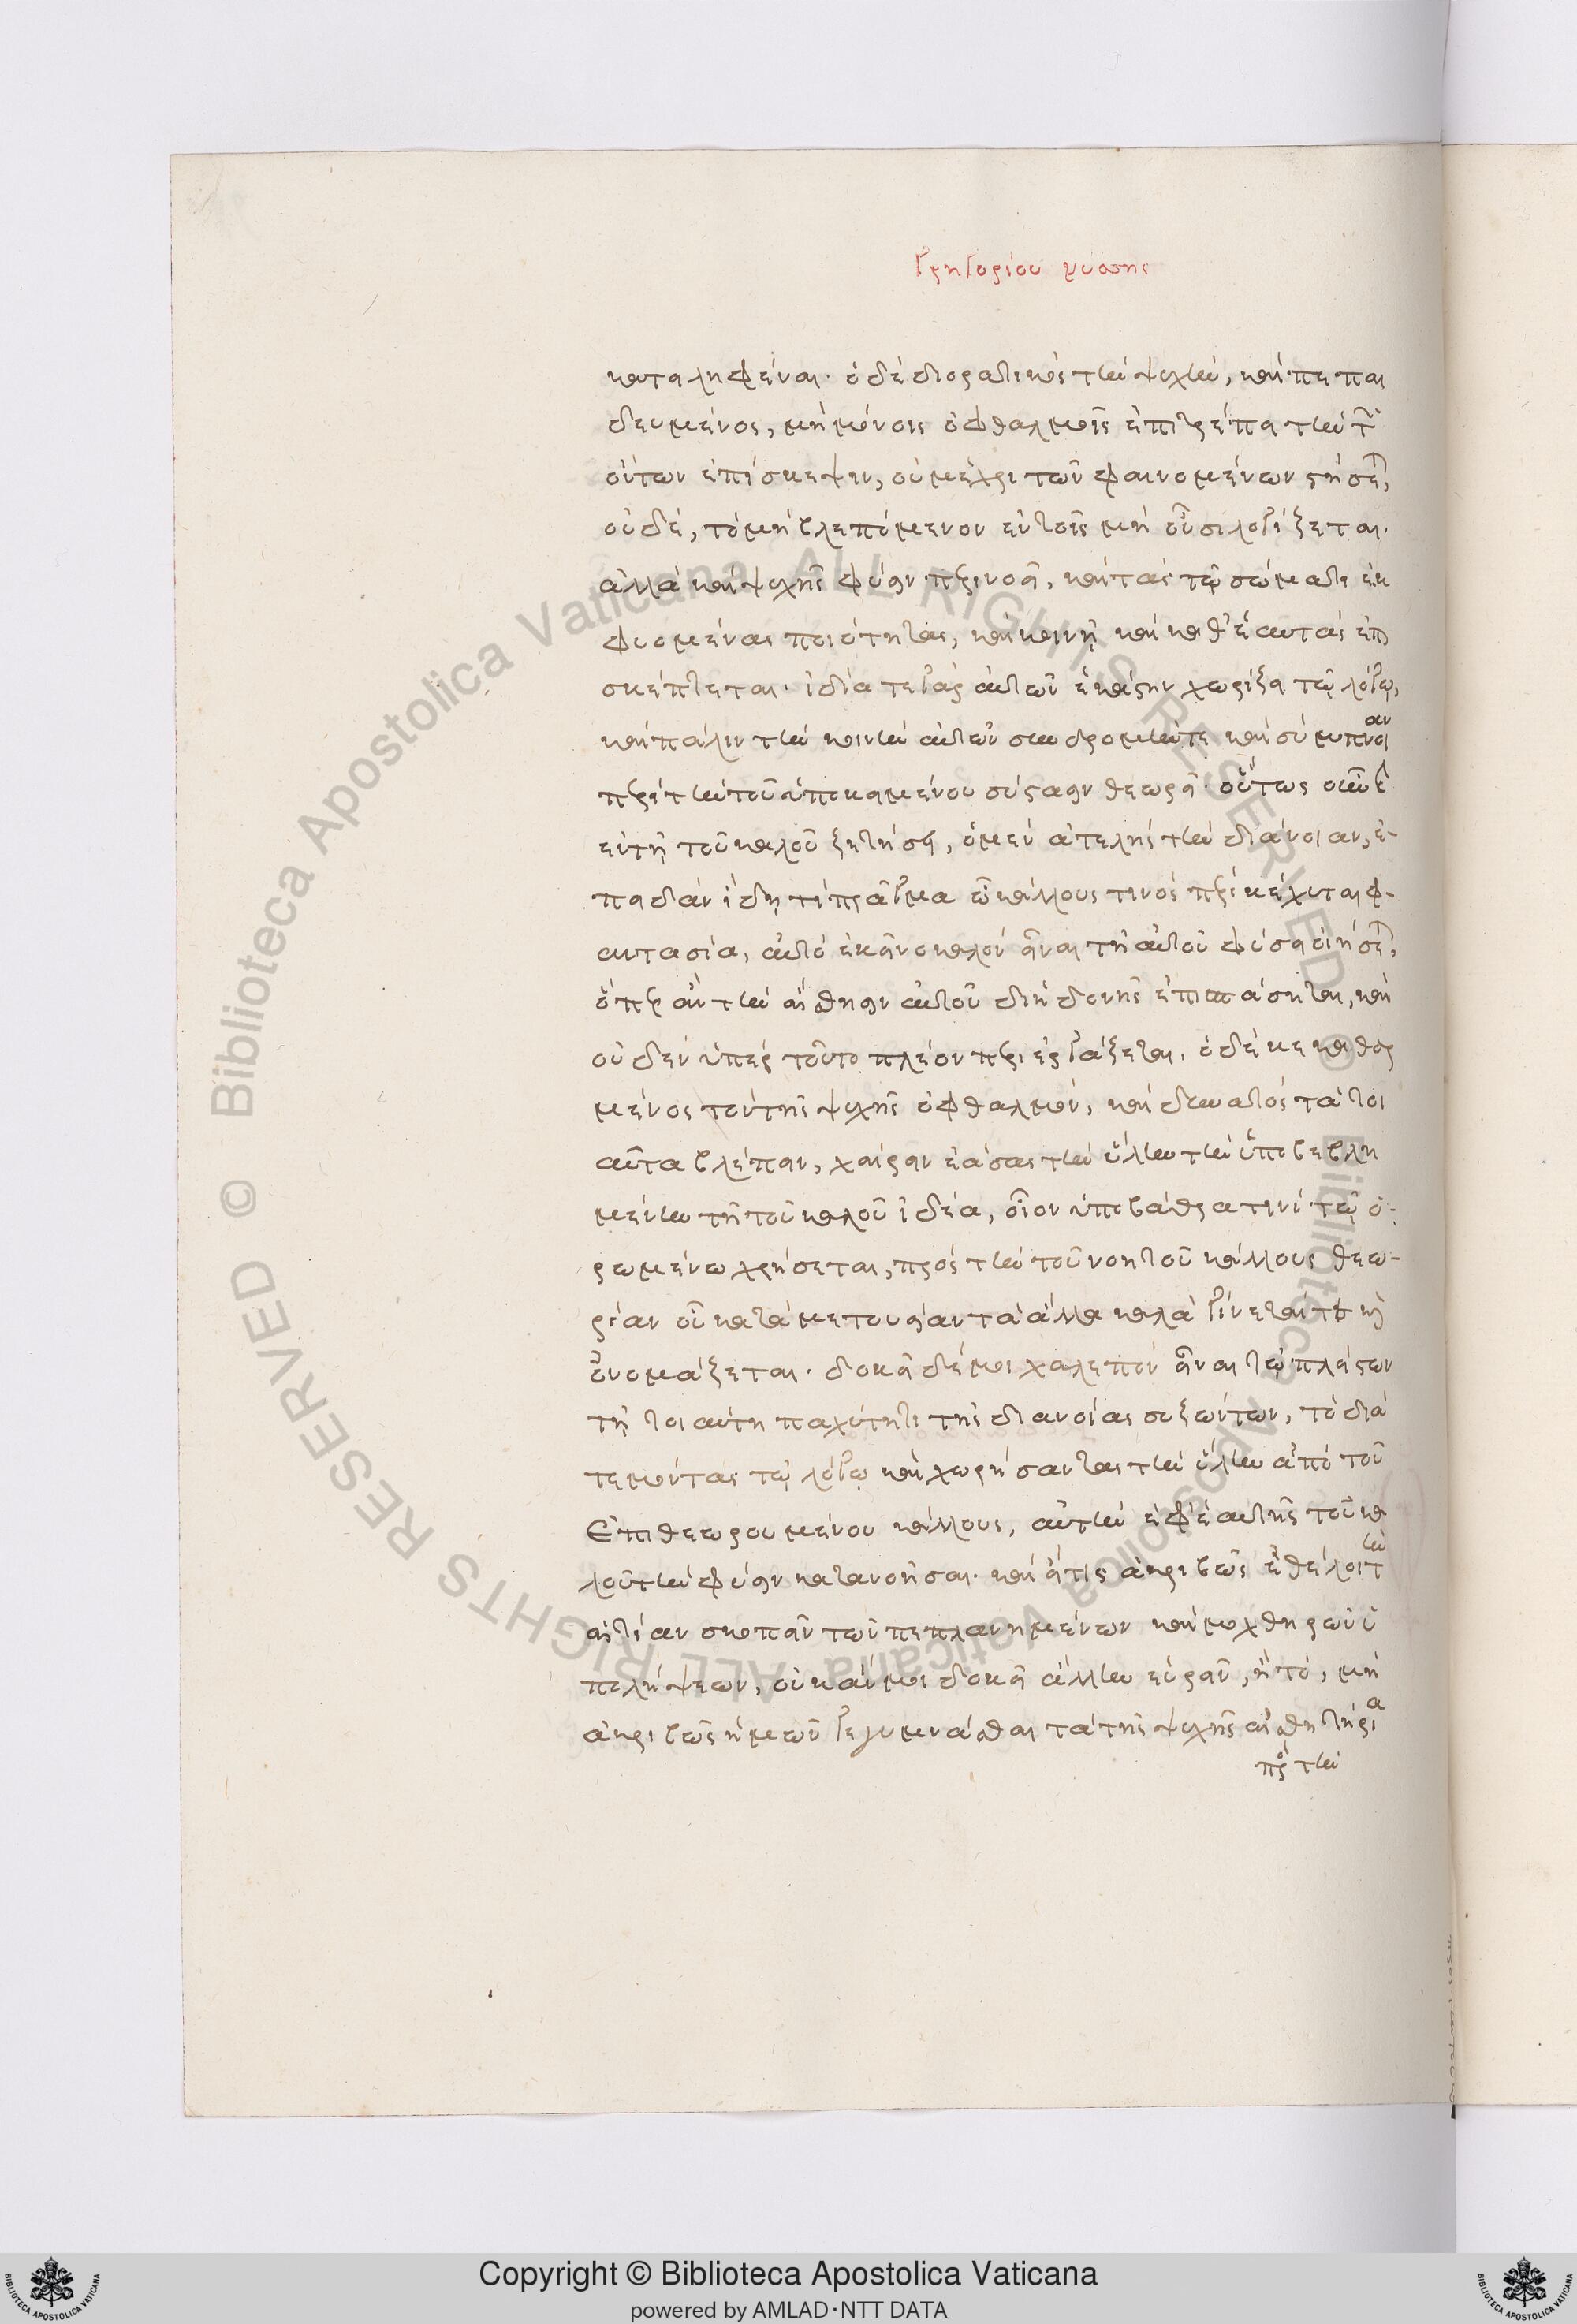 Γρηγορίου νύσης
καταληφέναι· ὁ δὲ διορατικὸς τὴν ψυχὴν, καὶ πεπαι
δευμένος, μὴ μόνοις ὀφθαλμοῖς ἐπιτρέπει τὴν τ̃
ὄντων ἐπίσκεψιν, οὐ μέχρι τῶν φαινομένων στήσετ̃,
οὐδὲ, τὸ μὴ βλεπόμενον ἐν τοῖς μὴ οὖσι λογίζεται·
ἀλλὰ καὶ ψυχῆς φύσιν περινοεῖ, καὶ τὰς τῷ σώματι ἐκ
φυομένας ποιότητας, καὶ κοινῇ καὶ καθ' ἑαυτὰς ἐπι
σκέπτεται· ἰδία τε γὰρ αὐτῶν ἑκάστην χωρίζει τῷ λόγῳ,
καὶ πάλιν τὴν κοινὴν αὐτῶν συνδρομήν τε καὶ σύμπνοιαν
περὶ τὴν τοῦ ὑποκειμένου σύστασιν θεωρεῖ· οὕτως οὖν κ̀
ἐν τῇ τοῦ καλοῦ ζητήσει, ὁ μὲν ἀτελὴς τὴν διάνοιαν, ἐ-
πειδὰν ἴδῃ τι πρᾶγμα ᾧ κάλλους τινὸς περικέχυται φ-
αντασία, αὐτὸ ἐκεῖνο καλὸν εἶναι τῇ αὐτοῦ φύσει οἰήσετ̃,
ὅπερ ἂν τὴν αἴσθησιν αὐτοῦ δι' ἡδονῆς ἐπισπάσηται, καὶ
οὐδὲν ὑπὲρ τοῦτο πλέον περιεργάζεται, ὁ δὲ κεκαθαρ
μένος τὸν τῆς ψυχῆς ὀφθαλμὸν, καὶ δυνατὸς τὰ τοι
αῦτα βλέπειν, χαίρειν ἐάσας τὴν ὕλην τὴν ὑποβεβλη
μένην τῇ τοῦ καλοῦ ἰδέα, οἷον ὑποβάθρα τινὶ τῷ ὁ-
ρωμένω χρήσεται, πρὸς τὴν τοῦ νοητοῦ κάλλους θεω-
ρίαν οὗ κατὰ μετουσίαν τὰ ἄλλα καλὰ γίνεταί τε κ̀
ὀνομάζεται· δοκεῖ δέ μοι χαλεπὸν εἶναι τῶν πλείστων
τῇ τοιαύτη παχύτητι τῆς διανοίας συζώντων, τὸ δια
τεμόντας τῷ λόγῳ καὶ χωρήσαντας τὴν ὕλην ἀπὸ τοῦ
ἐπιθεωρουμένου κάλλους, αὐτὴν ἐφ' ἑαυτῆς τοῦ κα
λοῦ τὴν φύσιν κατανοῆσαι· καὶ εἴ τις ἀκριβῶς ἐθέλοι τὴν
αἰτίαν σκοπεῖν τῶν πεπλανημένων καὶ μοχθηρῶν ὑ
πολήψεων, οὐκ ἄν μοι δοκεῖ ἄλλην εὑρεῖν, ἢ τὸ, μὴ
ἀκριβῶς ἡμῶν γεγυμνάσθαι τὰ τῆς ψυχῆς αἰσθητήρια
πρὸς τὴν